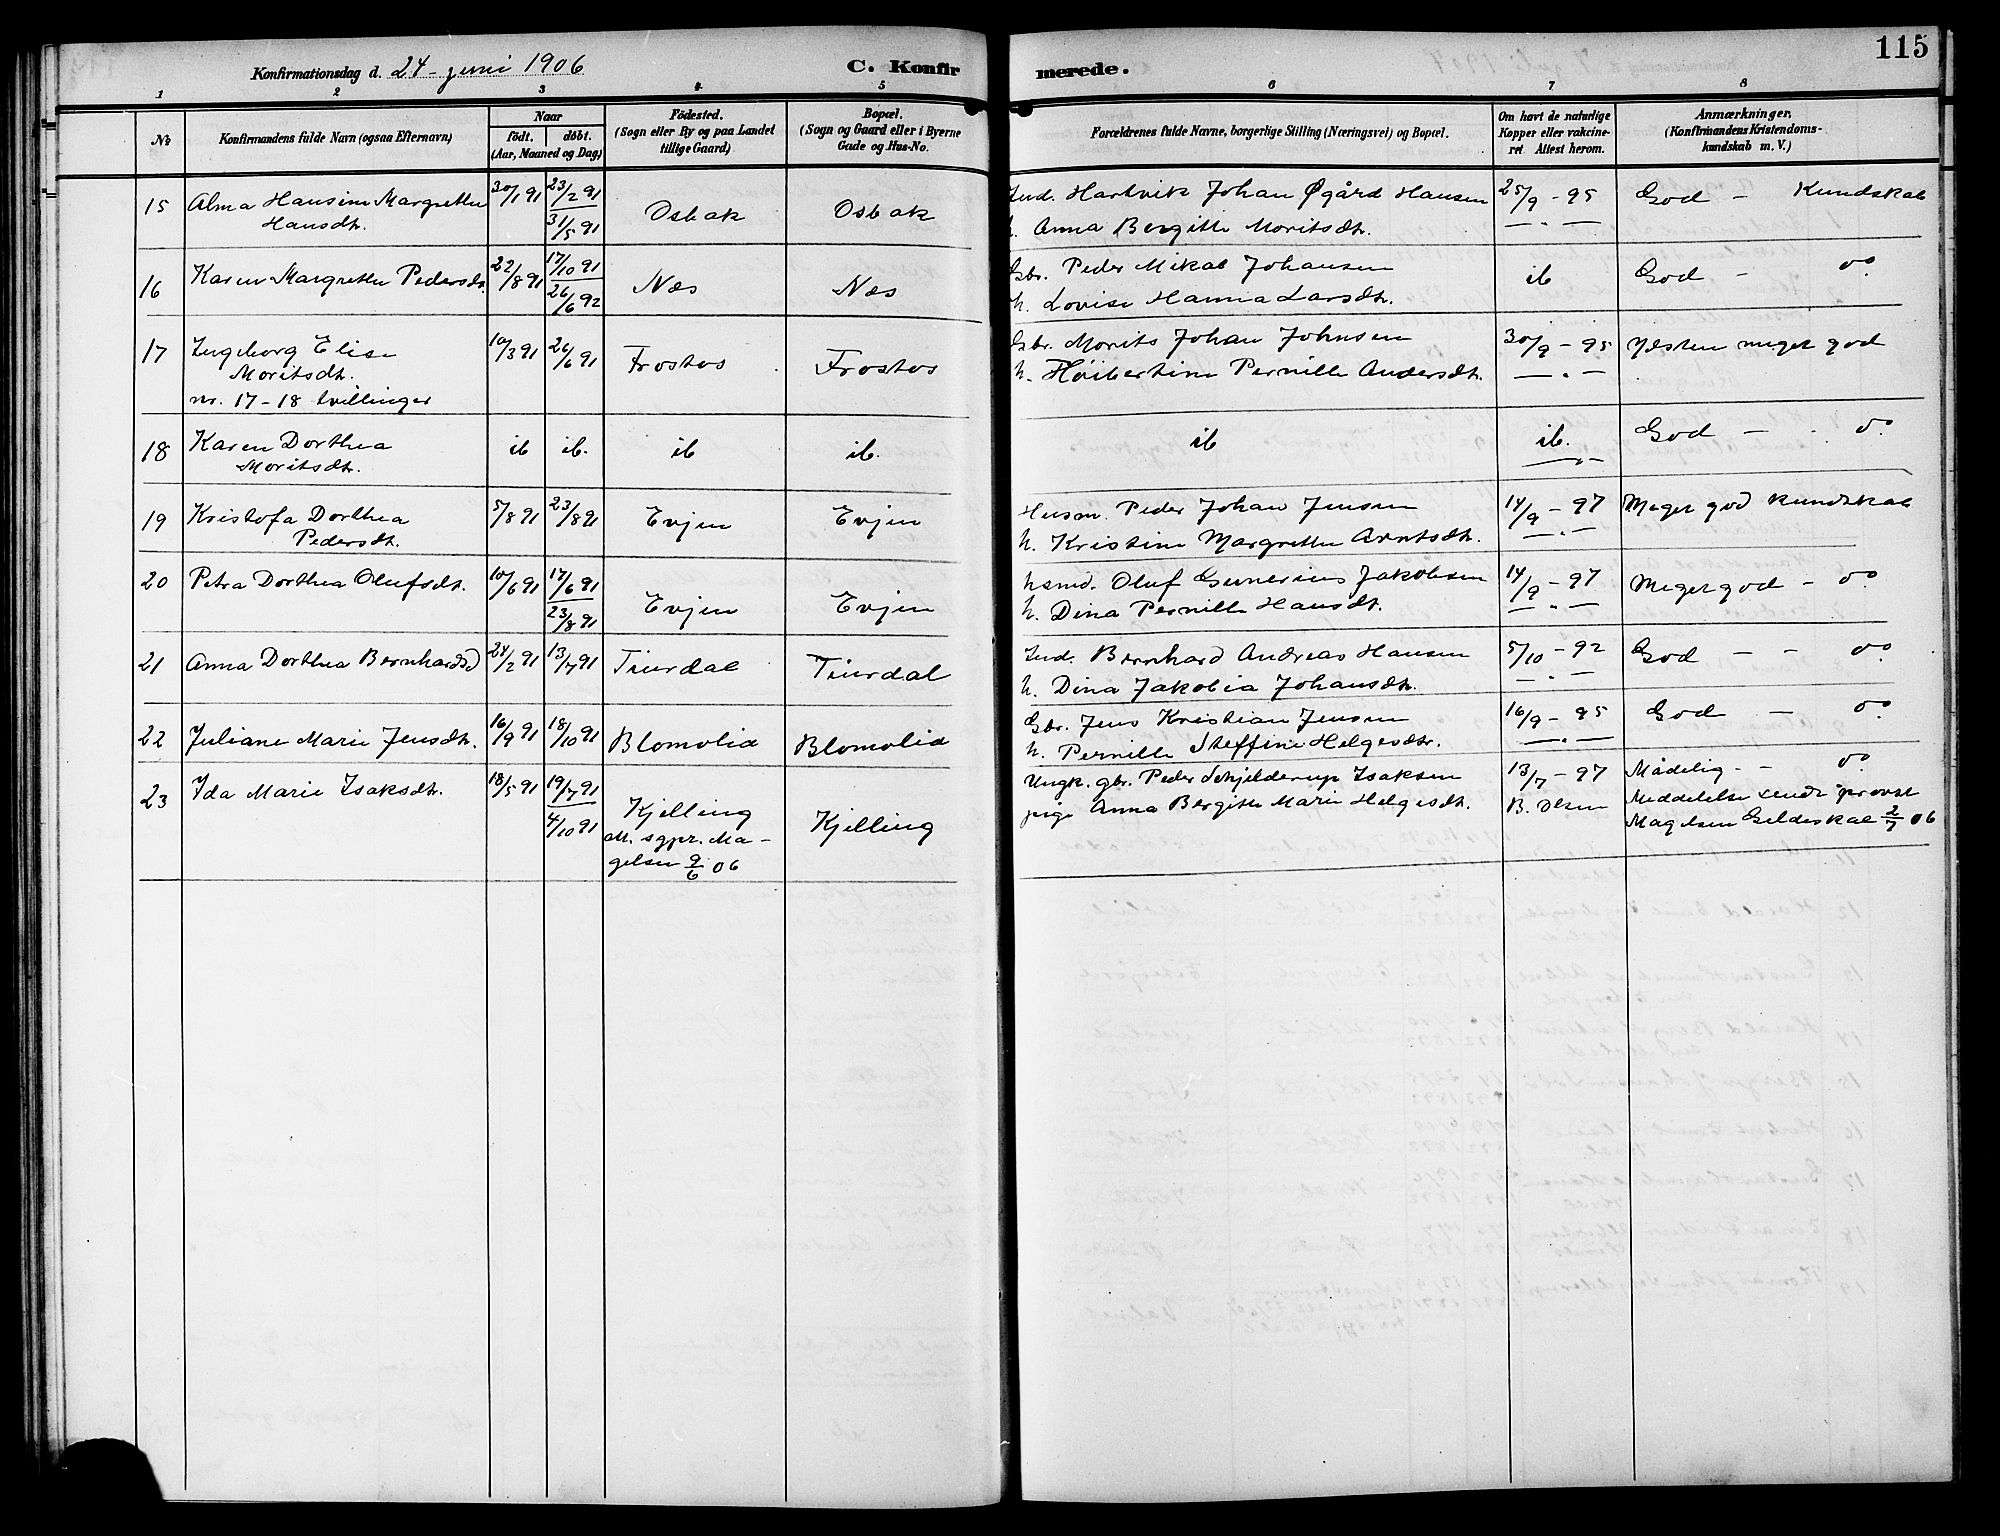 115
Konfirmationsdag d. 24 - juni 1906 C. Konfirmerede.
1 2 3 4 5 6 7 8
№
Konfirmandens fulde Navn (ogsaa Efternavn)
Naar
födt. döbt.
(Aar, Maaned og Dag)
Födested.
(Sogn eller By og paa Landet
tillige Gaard)
Bopæl.
(Sogn og Gaard eller i Byerne
Gade og Hus-No.
Forældrenes fulde Navne, borgerlige Stilling (Næringsvei) og Bopæl.
Om havt de naturlige
Kopper eller vakcine-
ret Attest herom.
Anmærkninger,
(Konfirmandens Kristendoms-
kundskab m. V.)
15 Alma Hansine Margrethe
Hansdtr.
30/1 91 23/2 91
31/5 91
Osbak Osbak
Ind. Hartvik Johan Øgård Hansen
h. Anna Bergitte Moritsdtr.
25/9 - 95
God - Kundskab
16 Karen Margrethe Pedersdtr.
22/8 91 17/10 91
26/6 92
Næs Næs
Gbr. Peder Mikal Johansen
h. Lovise Hanna Larsdtr.
ib
God - do
17 Ingeborg Elise
Moritsdtr.
nr. 17 - 18 tvillinger
10/3 91 26/6 91
Frostos Frostos
Gbr. Morits Johan Johnsen
h. Høibertine Pernille Andersdtr.
30/9 - 95
- " -
Næsten meget god
18 Karen Dorthea
Moritsdtr.
ib ib. ib ib. ib ib.
God - - do
19 Kristofa Dorthea
Pedersdtr.
5/8 91 23/8 91
Evjen Evjen
Husm. Peder Johan Jensen
h. Kristine Margrethe Arntsdtr.
14/9 - 97
- " -
Meget god kundskab
20 Petra Dorthea Olufsdtr.
10/6 91 17/6 91
23/8 91
Evjen Evjen
hsmd. Oluf Gunerius Jakobsen
h. Dina Pernille Hansdtr.
14/9 - 97
- " -
Meget god - do
21 Anna Dorthea Bernhardsd
24/2 91 13/7 91
Tiurdal Tiurdal
Ind. Bernhard Andreas Hansen
h. Dina Jakobia Johansdtr.
5/10 - 92
- " -
God - - do
22 Juliane Marie Jensdtr.
16/9 91 18/10 91
Blomolid Blomolid
Gbr. Jens Kristian Jensen
h. Pernille Steffine Helgesdtr.
16/9 - 95
- " -
God - do
23 Ida Marie Isaksdtr.
18/5 91 19/7 91
4/10 91
Kjelling
M. sgpr. Ma-
gelsen 9/6 06
Kjelling
Ungk. gbr. Peder Schjelderup Isaksen
pige Anna Bergitte Marie Helgesdtr.
13/7 - 97
B. Olsen
Mådelig - do
Meddelelse sendt provst
Magelsen Gildeskal 2/7 06